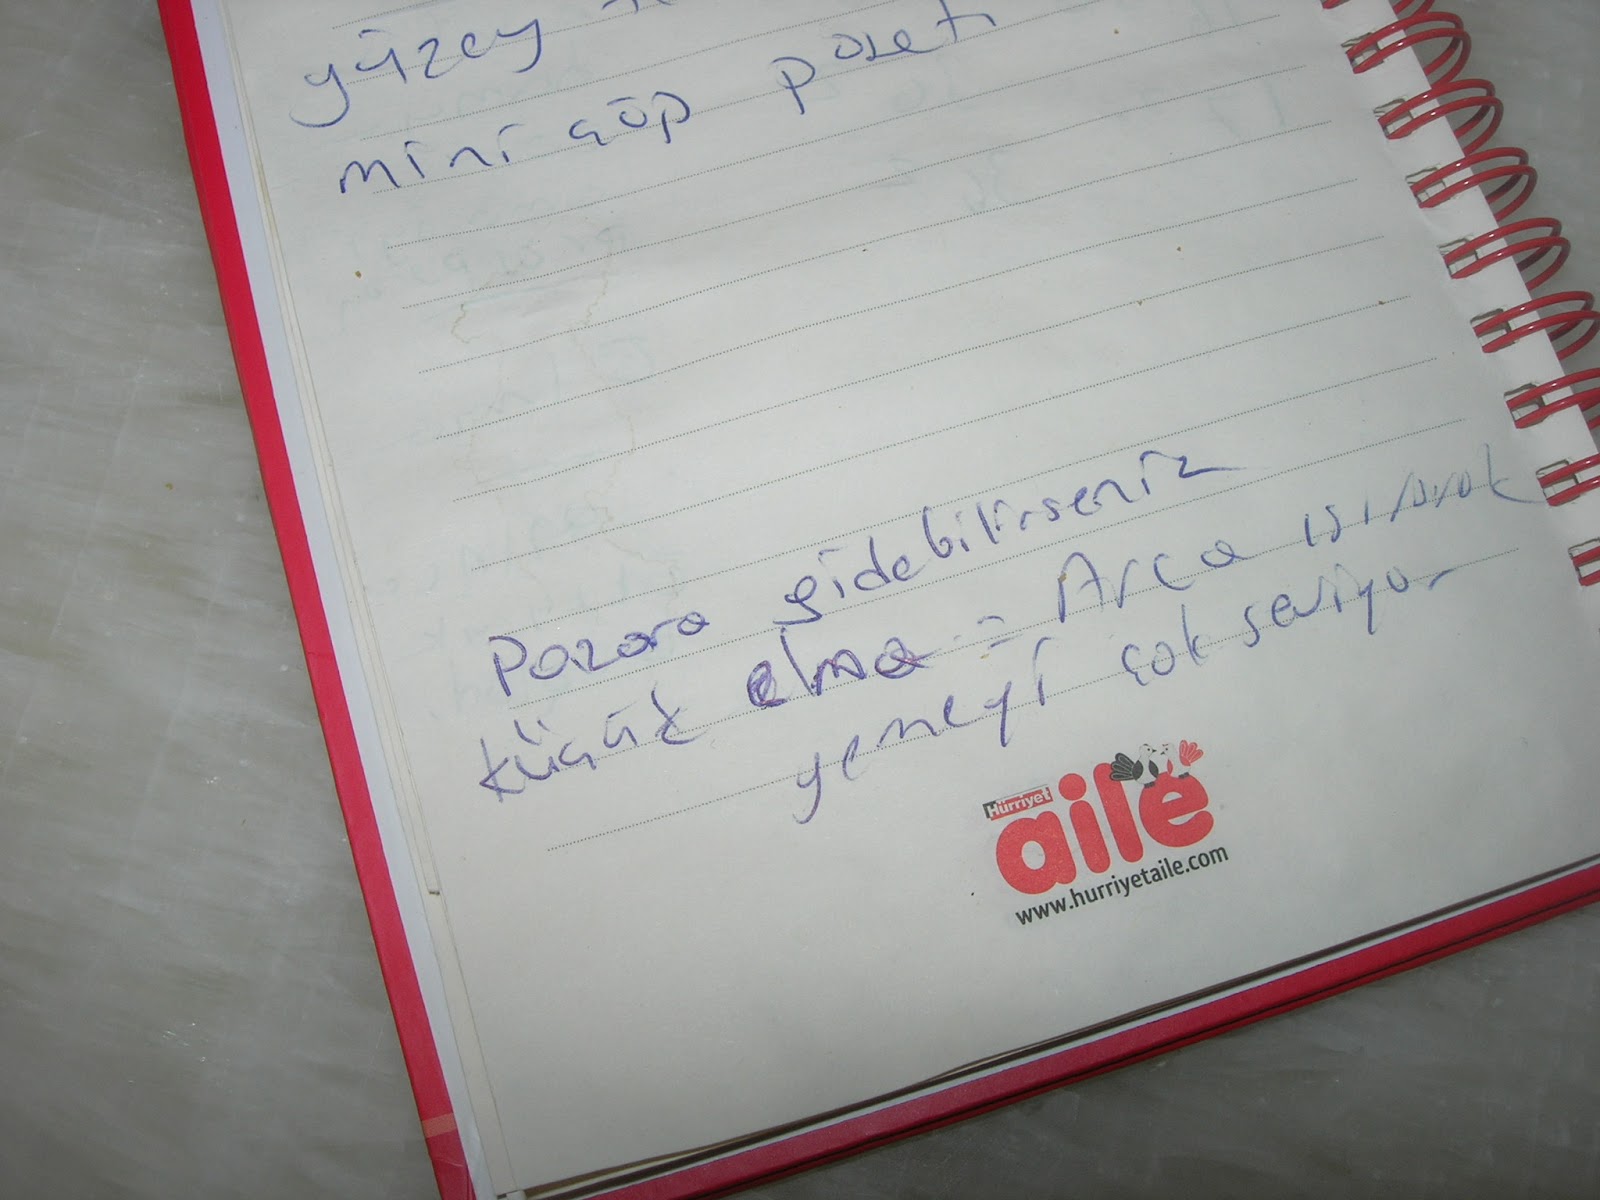 yüzey
mini çöp poşeti
Pazara gidebilirseniz
küçük elma = Arça ısırarak
yemeyi çok seviyor
Hürriyet
aile
www.hurriyetaile.com